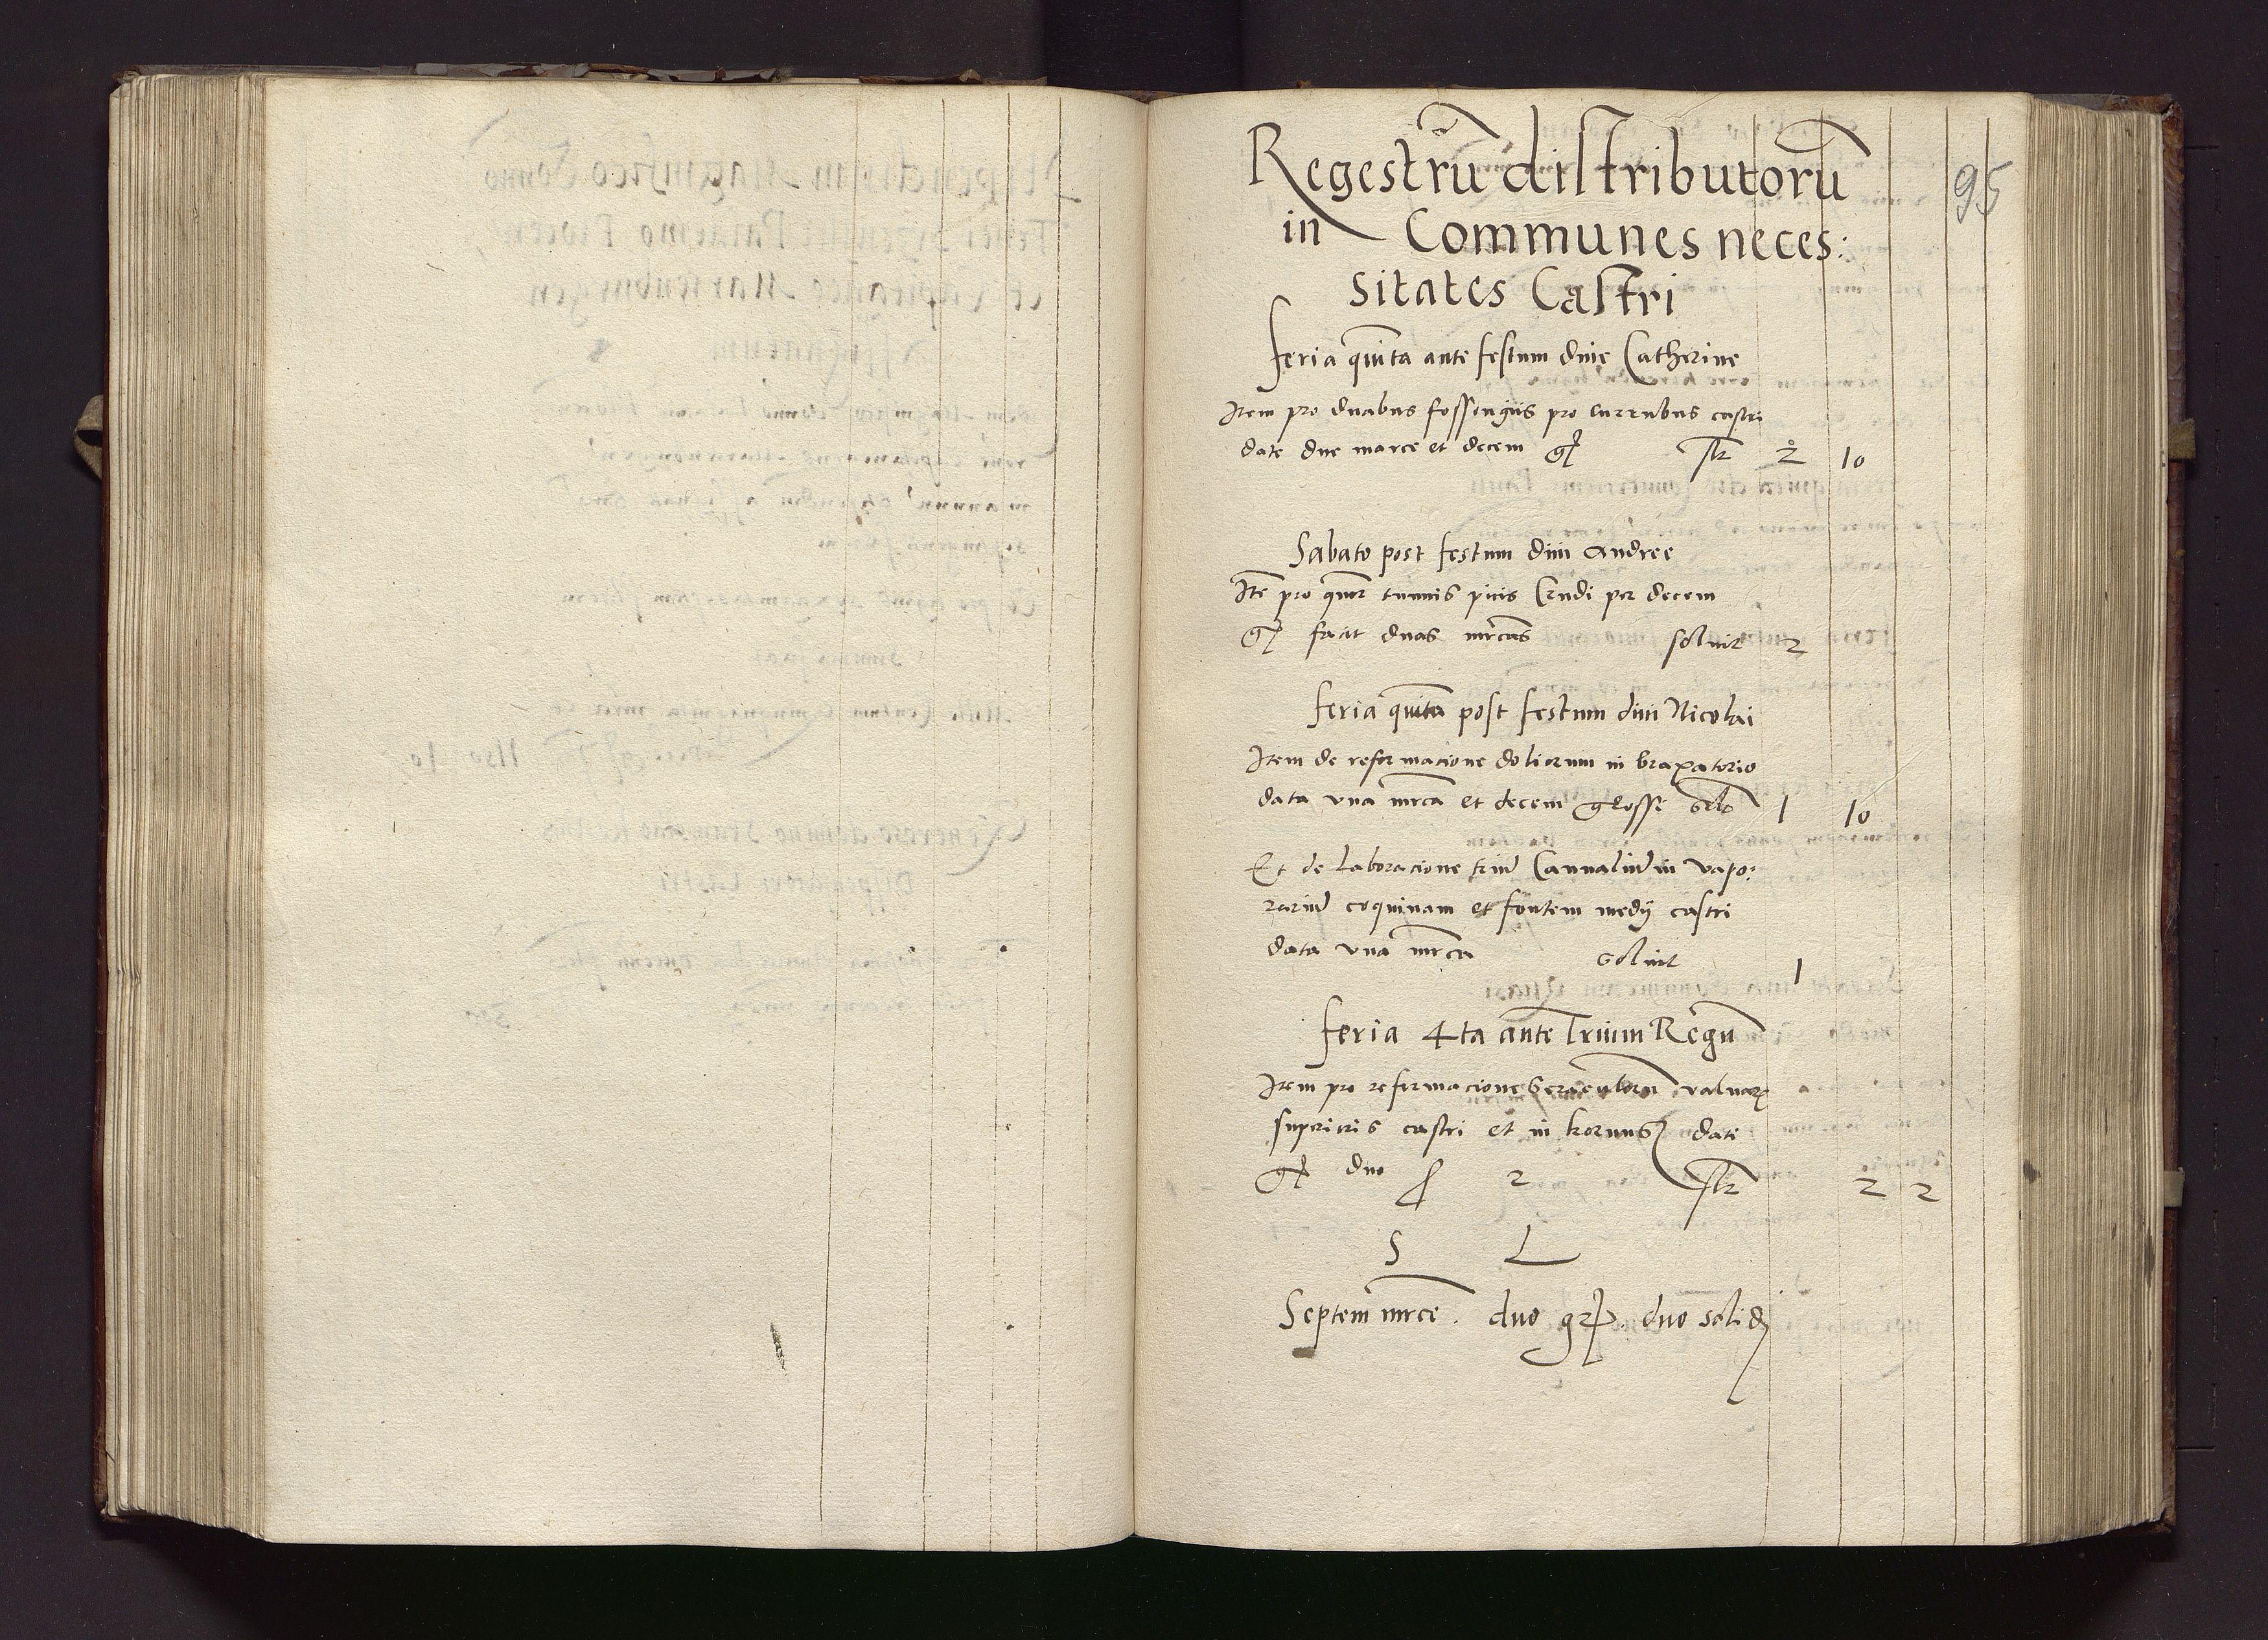 95
Regestrū distributorū
in Communes neces:
sitates Castri
feria quīta ante festum diue Catherine
Item pro duabus fossongiis pro curribus castri
date due marce et decem gỻ 2 10
Sabato post festum diui Andree
Itē pro quor tunnis picis Crudi per decem
facit duas mrcas soluit 2
feria quīta post festum diui Nicolai
Item de reformacione doliorum in braxatorio
data vna mrca et decem grossi 1 10
Et de laboracione Cannaliū in vapo:
rariū coquinam et fontem medij castri
data vna mrca soluit 1
feria 4ta ante Trium Regū
Item pro reformacione valuarꝫ
superioris castri et in date
duo 2 2 2
S L
Septem mrce. duo grꝭ. duo solidꝫ